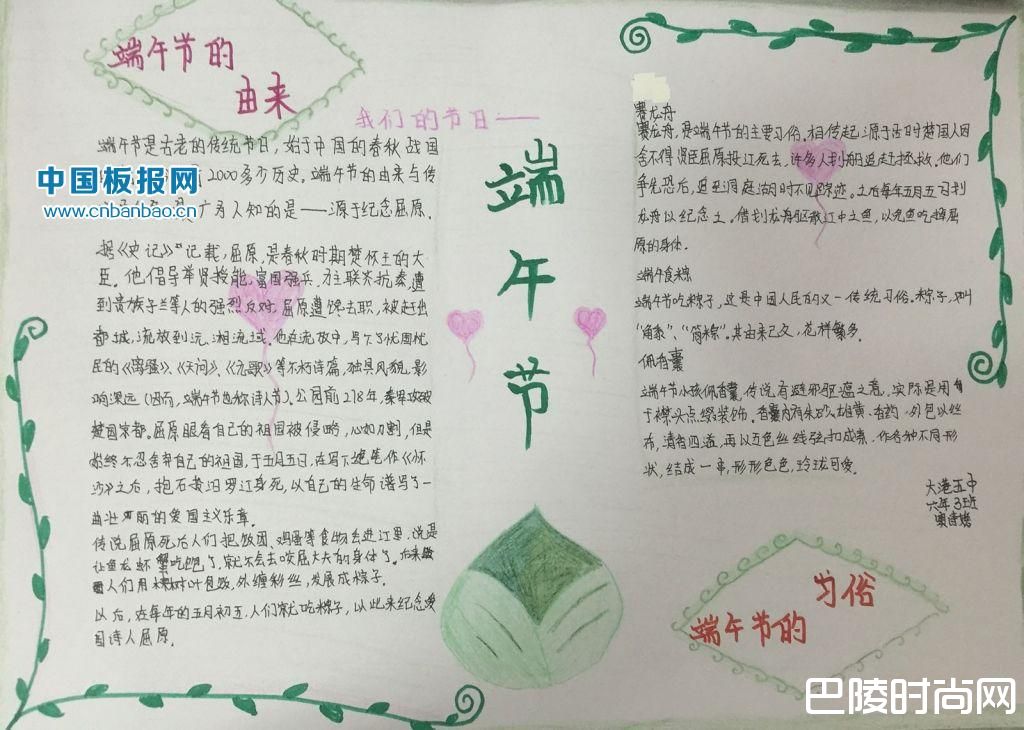 端午节的
由来
我们的节日——
端午节是古老的传统节日，始于中国的春秋战国
2000多少历史。端午节的由来与传
广为人知的是——源于纪念屈原。
据《史记》记载，屈原，是春秋时期楚怀王的大
臣。他倡导举贤授能，富国强兵，力主联齐抗秦，遭
到贵族子兰等人的强烈反对，屈原遭馋去职，被赶出
都城，流放到沅、湘流域。他在流放中，写下了忧国忧
民的《离骚》、《天问》、《九歌》等不朽诗篇，独具风貌，影
响深远（因而，端午节也称诗人节）。公园前278年，秦军攻破
楚国京都。屈原眼看自己的祖国被侵略，心如刀割，但是
始终不忍舍弃自己的祖国，于五月五日，在写下绝笔作《怀
沙》之后，抱石投汨罗江身死，以自己的生命谱写了一
曲壮丽的爱国主义乐章。
传说屈原死后人们把饭团、鸡蛋等食物丢进江里，说是
让鱼龙虾蟹吃饱了，就不会去咬屈大夫的身体了。后来
人们用楝树叶包饭，外缠彩丝，发展成棕子。
以后，在每年的五月初五，人们就吃粽子，以此来纪念爱
国诗人屈原。
端
午
节
赛龙舟
赛龙舟，是端午节的主要习俗。相传起源于古时楚国人因
舍不得贤臣屈原投江死去，许多人划船追赶拯救。他们
争先恐后，追至洞庭湖时不见踪迹。之后每年五月五日划
龙舟以纪念之。借划龙舟驱散江中之鱼，以免鱼吃掉屈
原的身体。
端午食粽
端午节吃粽子，这是中国人民的又一传统习俗。粽子，叫
“角黍”、“筒粽”。其由来已久，花样繁多。
佩香囊
端午节小孩佩香囊，传说有避邪驱瘟之意，实际是用
于襟头点缀装饰。香囊内有朱砂、雄黄、香药，外包以丝
布，清香四溢，再以五色丝线弦扣成索，作各种不同形
状，结成一串，形形色色，玲珑可爱。
大港五中
六年3班
端午节的
习俗
中国板报网
www.cnbanbao.cn
巴陵时尚网